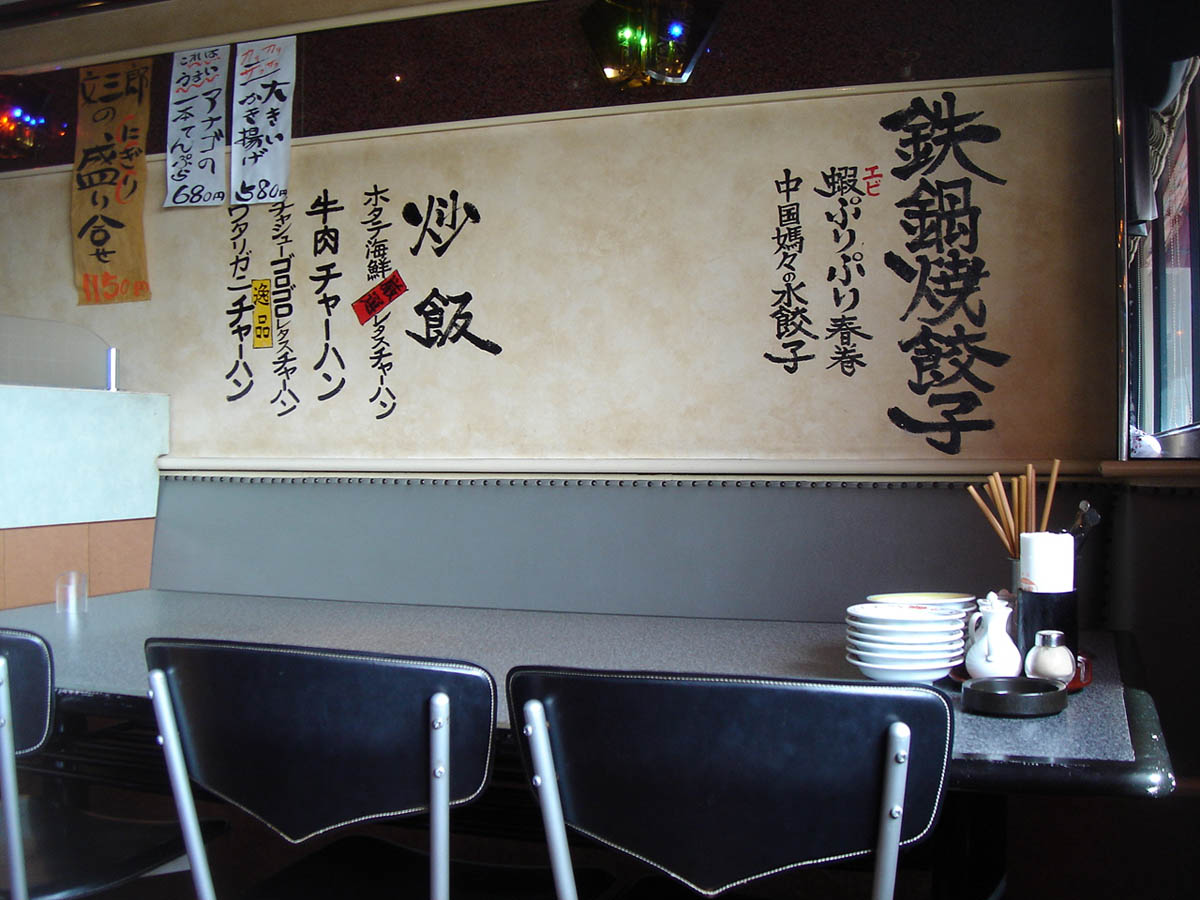 鉄鍋焼餃子
エビ
蝦ぷりぷり春巻
中国媽々の水餃子
炒飯
ホタテ海鮮レタスチャーハン
牛肉チャーハン
チャシューゴロゴロレタスチャーハン
逸品
ワタリガニチャーハン
カリカリ
サクサク
大きい
かき揚げ
580円
これはうまい
アナゴの
一本てんぷら
680円
三郎の
にぎり
盛り合せ
1150円